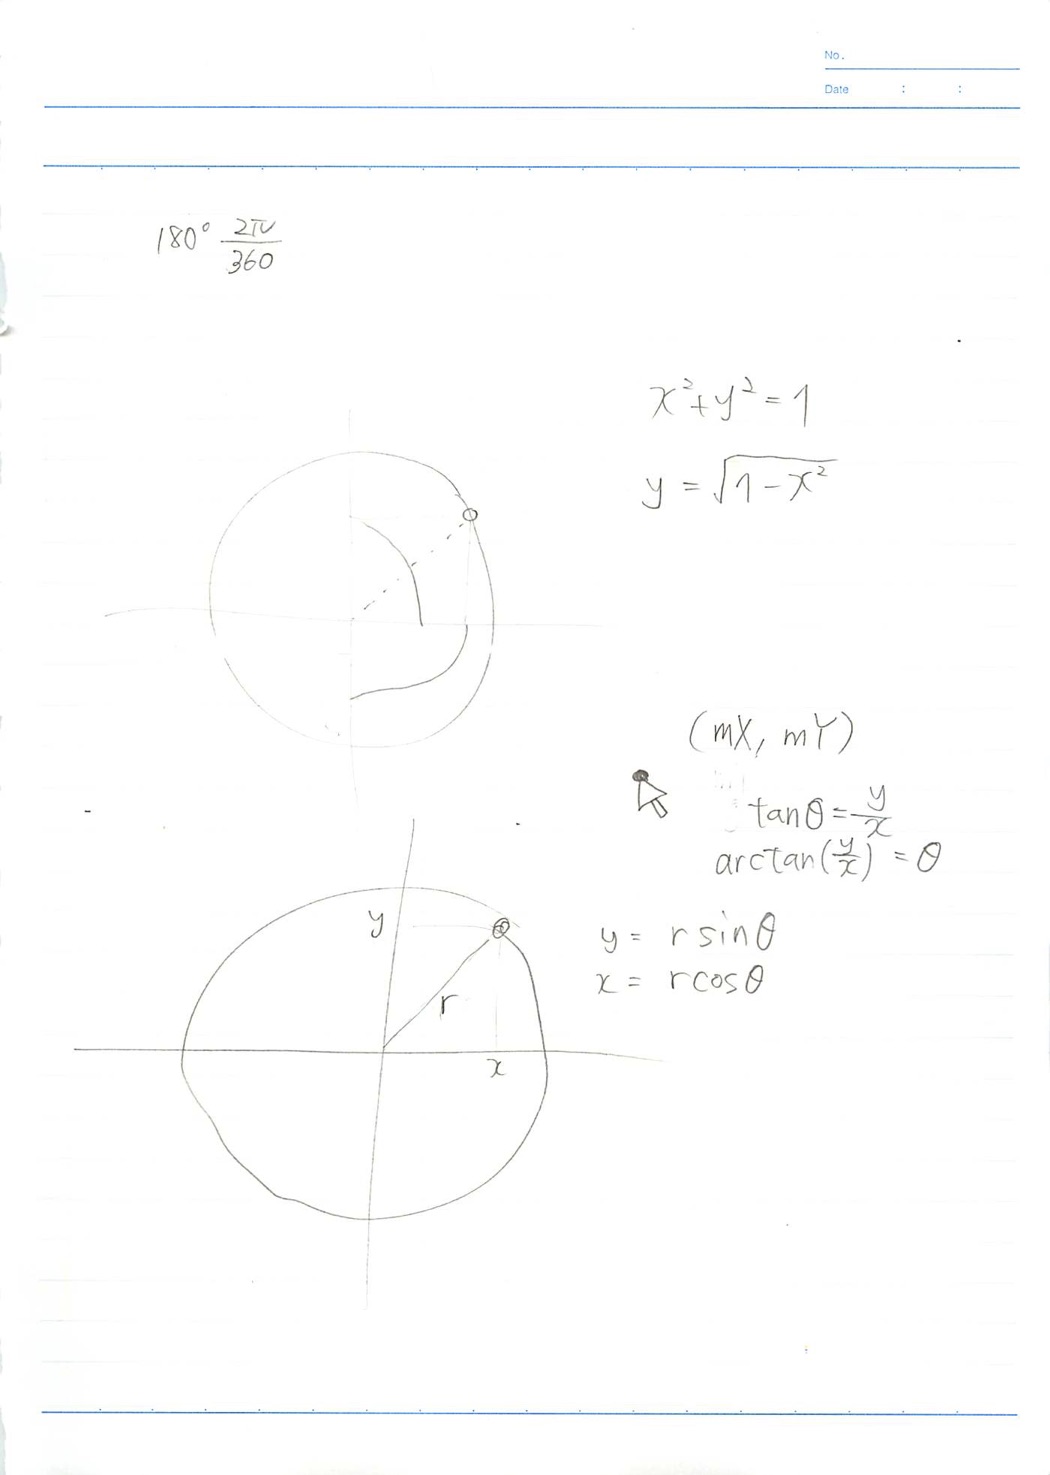 No.
Date : :
180° 2π/360
x²+y²=1
y=√1-x²
(mX, mY)
tanθ=y/x
arctan(y/x)=θ
y
y= r sinθ
x= rcosθ
r
x